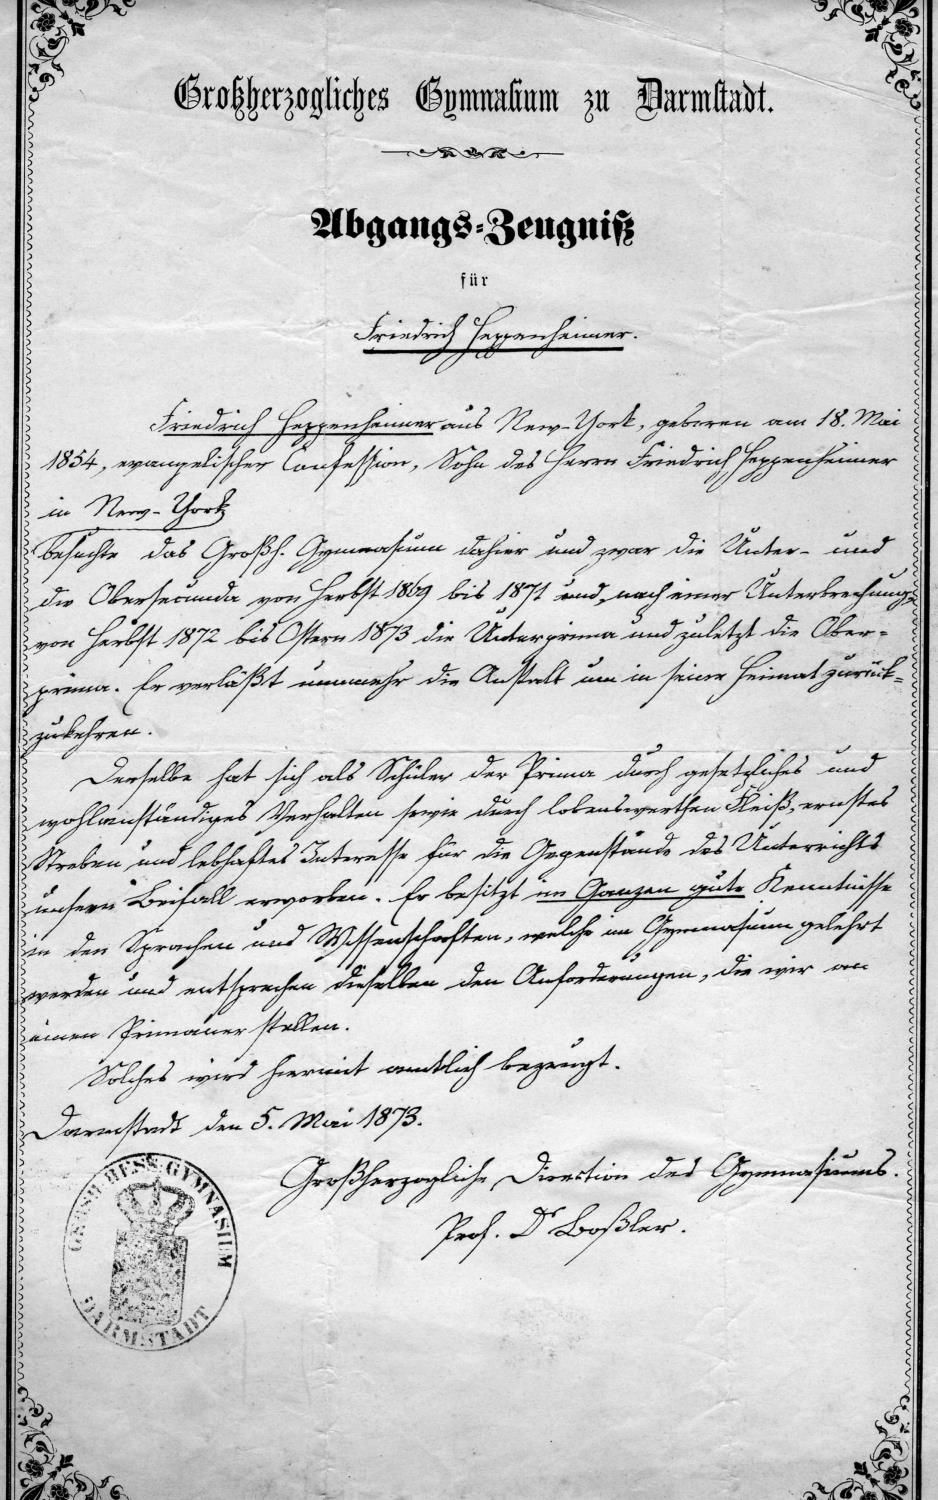 Großherzogliches Gymnasium zu Darmstadt.
Abgangs-Zeugniß
für
Friedrich Heppenheimer.
Friedrich Heppenheimer aus New-York, geboren am 18. Mai
1854, evangelischer Confession, Sohn des Herrn Friedrich Heppenheimer
in New-York
besuchte das Großh. Gymnasium dahier und zwar die Unter- und
die Obersecunda von Herbst 1869 bis 1871 und, nach einer Unterbrechung,
von Herbst 1872 bis Ostern 1873 die Unterprima und zuletzt die Ober-
prima. Er verläßt nunmehr die Anstalt um in seine Heimat zurück-
zukehren.
Derselbe hat sich als Schüler der Prima durch gesetzliches und
wohlanständiges Verhalten sowie durch lobenswerthen Fleiß, ernstes
Streben und lebhaftes Interesse für die Gegenstände des Unterrichts
unsern Beifall erworben. Er besitzt im Ganzen gute Kenntnisse
in den Sprachen und Wissenschaften, welche im Gymnasium gelehrt
werden und entsprechen dieselben den Anforderungen, die wir an
einen Primaner stellen.
Solches wird hiermit amtlich bezeugt.
Darmstadt den 5. Mai 1873.
Großherzogliche Direction des Gymnasiums.
Prof. Dr Boßler.
GROSH. HESS. GYMNASIUM
DARMSTADT